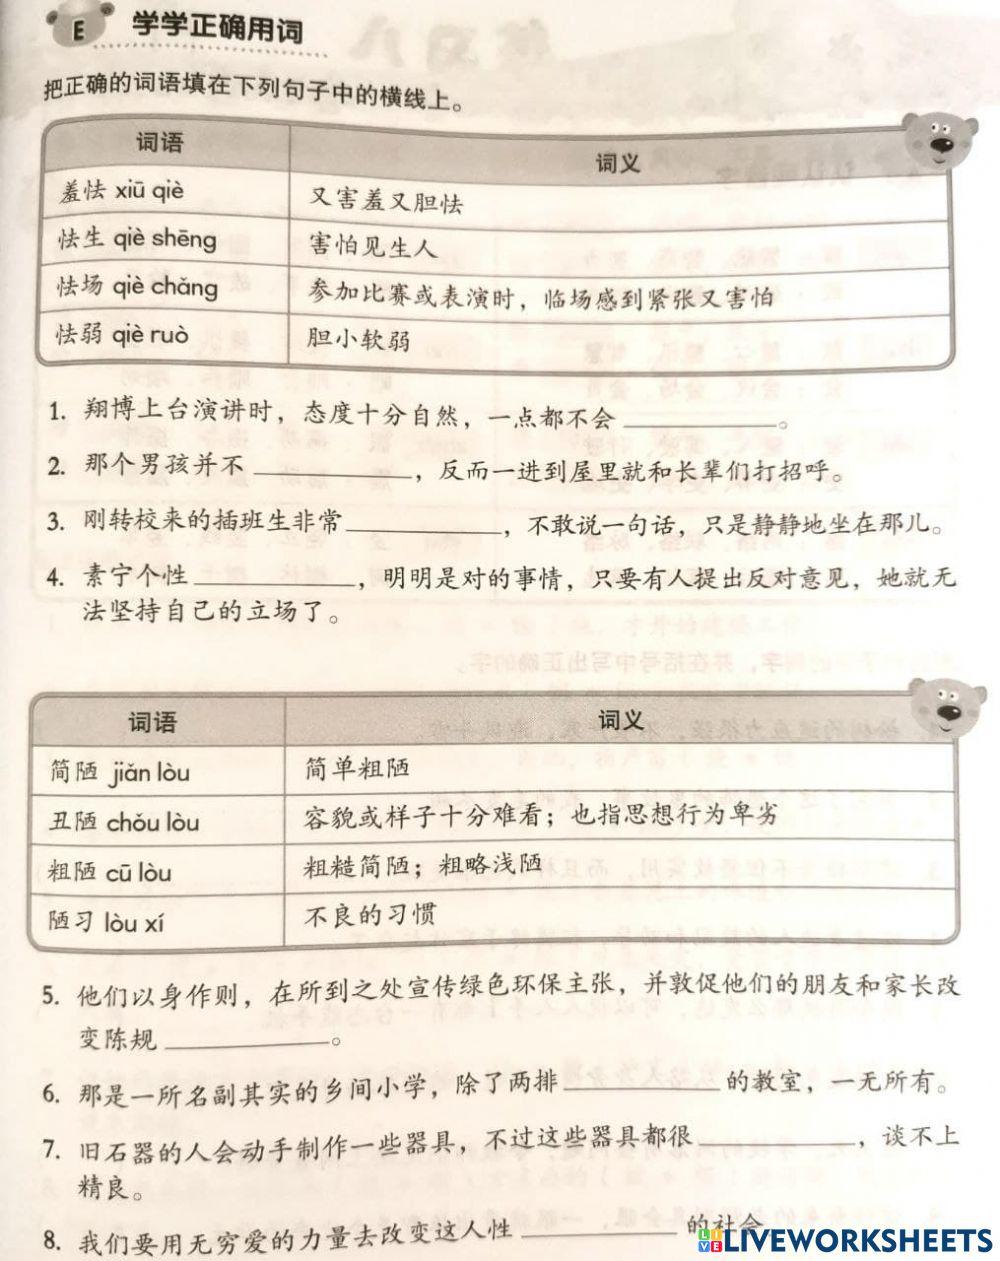 E 学学正确用词
把正确的词语填在下列句子中的横线上。
词语 词义
羞怯 xiū qiè 又害羞又胆怯
怯生 qiè shēng 害怕见生人
怯场 qiè chǎng 参加比赛或表演时，临场感到紧张又害怕
怯弱 qiè ruò 胆小软弱
1. 翔博上台演讲时，态度十分自然，一点都不会 ____________。
2. 那个男孩并不 ____________，反而一进到屋里就和长辈们打招呼。
3. 刚转校来的插班生非常 ____________，不敢说一句话，只是静静地坐在那儿。
4. 素宁个性 ____________，明明是对的事情，只要有人提出反对意见，她就无
法坚持自己的立场了。
词语 词义
简陋 jiǎn lòu 简单粗陋
丑陋 chǒu lòu 容貌或样子十分难看；也指思想行为卑劣
粗陋 cū lòu 粗糙简陋；粗略浅陋
陋习 lòu xí 不良的习惯
5. 他们以身作则，在所到之处宣传绿色环保主张，并敦促他们的朋友和家长改
变陈规 ____________。
6. 那是一所名副其实的乡间小学，除了两排 ____________ 的教室，一无所有。
7. 旧石器的人会动手制作一些器具，不过这些器具都很 ____________，谈不上
精良。
8. 我们要用无穷爱的力量去改变这人性 ____________ 的社会
LIVE LIVEWORKSHEETS